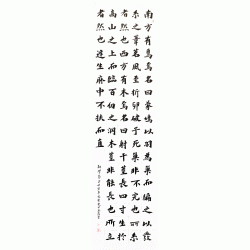 南方有鳥焉名曰蒙鳩以羽為巢而編之以髮
系之葦苕風至苕折卵破子死巢非不完也所系
者然也西方有木焉名曰射干莖長四寸生於
高山之上而臨百仞之淵木莖非能長也所立
者然也蓬生麻中不扶而直